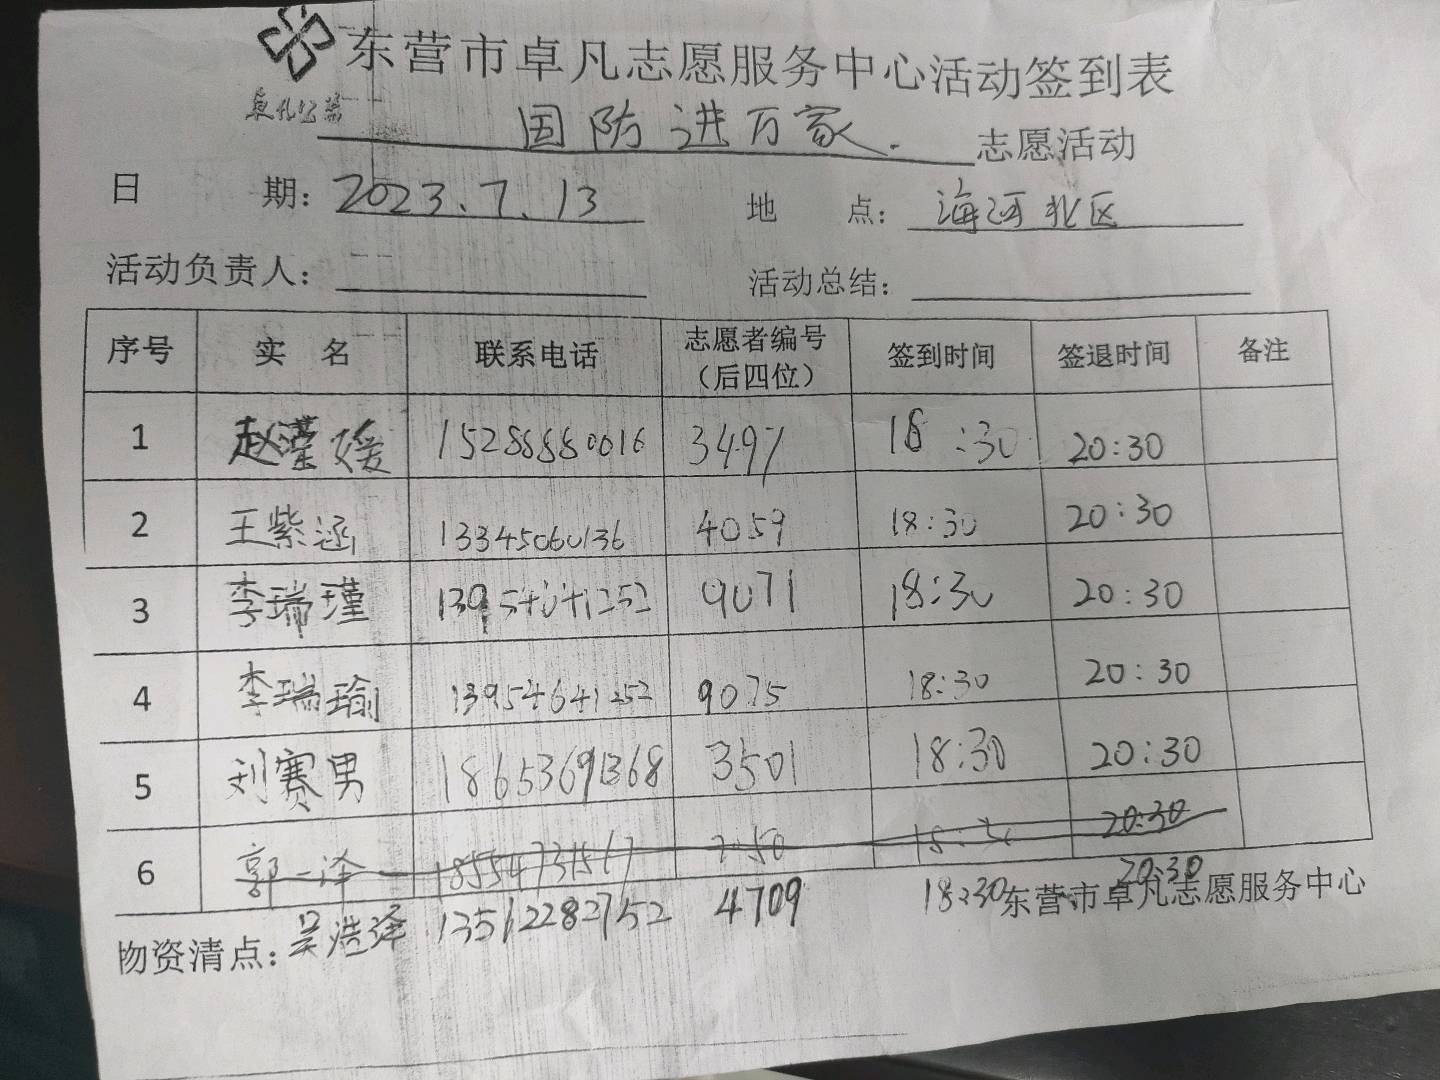 东营市卓凡志愿服务中心活动签到表
国防进万家. 志愿活动
日 期: 2023.7.13 地 点: 海河北区
活动负责人: 活动总结:
序号 实 名 联系电话 志愿者编号（后四位） 签到时间 签退时间 备注
1 赵瑾媛 15288880016 3497 18:30 20:30
2 王紫涵 13345060136 4059 18:30 20:30
3 李瑞瑾 9071 18:30 20:30
4 李瑞瑜 13954641252 9075 18:30 20:30
5 刘赛男 18653691368 3501 18:30 20:30
6 郭一泽 18554731567 18:30 20:30
吴浩泽 13512282752 4709 18:30 20:30
物资清点: 东营市卓凡志愿服务中心